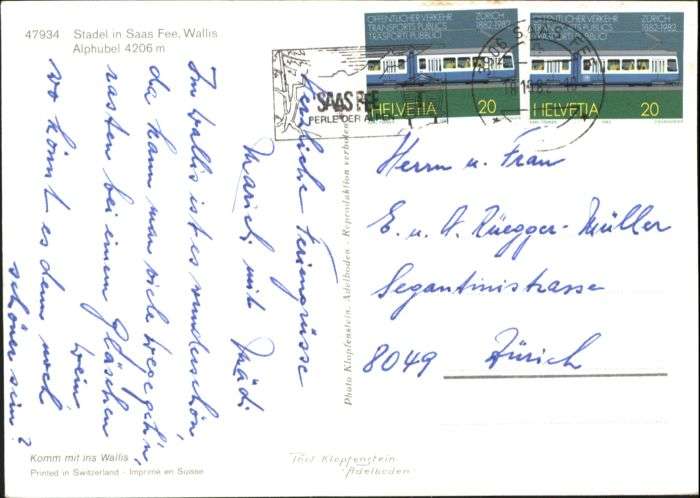 47934 Stadel in Saas Fee, Wallis
Alphubel 4206 m
Im Wallis ist es wunderschön,
da kann man sich bewegeh'n,
rasten bei einem Gläschen
Wein
wo könnt es denn noch
schöner sein?
Herzliche Feriengrüsse
mit Mädi
Komm mit ins Wallis
Printed in Switzerland - Imprimé en Suisse
Photo Klopfenstein, Adelboden - Reproduktion verboten
Phot Klopfenstein
Adelboden
SAAS FEE
PERLE DER ALPEN
ÖFFENTLICHER VERKEHR
TRANSPORTS PUBLICS
TRASPORTI PUBBLICI
ZÜRICH
1882-1982
HELVETIA 20
ÖFFENTLICHER VERKEHR
TRANSPORTS PUBLICS
TRASPORTI PUBBLICI
ZÜRICH
1882-1982
HELVETIA 20
Herrn u. Frau
E. u. A. Rüegger-Müller
Segantinistrasse
8049 Zürich